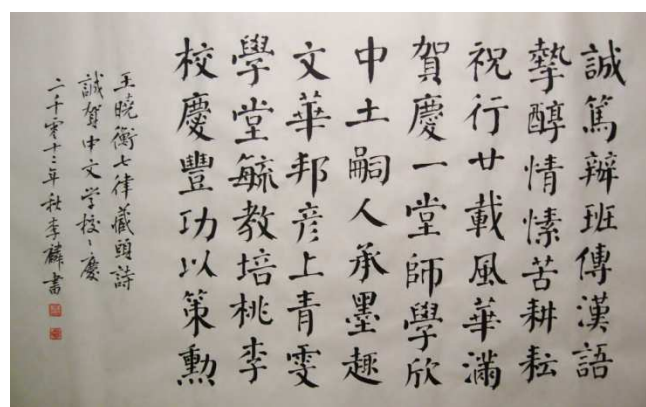 誠篤辦班傳漢語
摯醇情愫苦耕耘
祝行廿載風華滿
賀慶一堂師學欣
中土嗣人承墨趣
文華邦彦上青雯
學堂毓教培桃李
校慶豐功以策勳
王曉衡七律藏頭詩
誠賀中文学校〻慶
二千零十二年秋李麟書